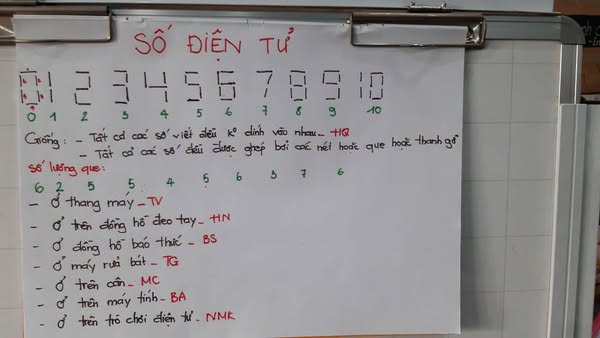 SỐ ĐIỆN TỬ
0 1 2 3 4 5 6 7 8 9 10
0 1 2 3 4 5 6 7 8 9 10
Giống: - Tất cả các số viết đều ko dính vào nhau - HQ
- Tất cả các số đều được ghép bởi các nét hoặc que hoặc thanh gỗ
Số lượng que:
6 2 5 5 4 5 6 3 7 6
- Ở thang máy - TV
- Ở trên đồng hồ đeo tay - HN
- Ở đồng hồ báo thức - BS
- Ở máy rửa bát - TG
- Ở trên cân - MC
- Ở trên máy tính - BA
- Ở trên trò chơi điện tử - NMK